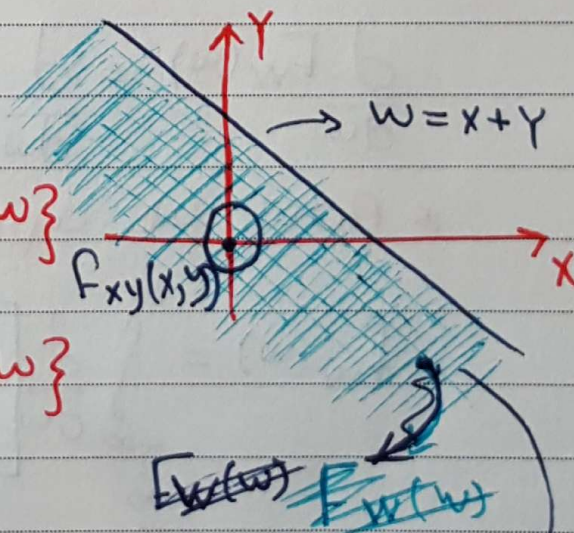 Y
W = X + Y
w}
X
fxy(x,y)
w}
Fw(w) Fw(w)